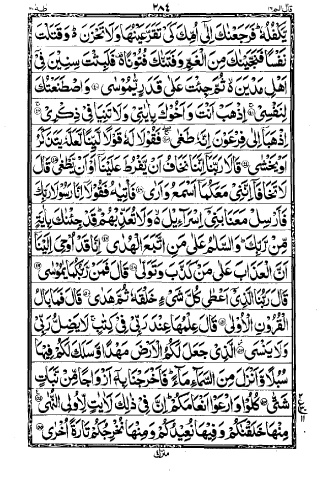 قال الم ١٦ ٢٨٤ طٰهٰ ٢٠
يَّكْفُلُهٗ فَرَجَعْنٰكَ اِلٰٓى اُمِّكَ كَيْ تَقَرَّ عَيْنُهَا وَلَا تَحْزَنَ وَقَتَلْتَ
نَفْسًا فَنَجَّيْنٰكَ مِنَ الْغَمِّ وَفَتَنّٰكَ فُتُوْنًا فَلَبِثْتَ سِنِيْنَ فِيْٓ
اَهْلِ مَدْيَنَ ثُمَّ جِئْتَ عَلٰى قَدَرٍ يّٰمُوْسٰى وَاصْطَنَعْتُكَ
لِنَفْسِيْ اِذْهَبْ اَنْتَ وَاَخُوْكَ بِاٰيٰتِيْ وَلَا تَنِيَا فِيْ ذِكْرِيْ
اِذْهَبَآ اِلٰى فِرْعَوْنَ اِنَّهٗ طَغٰى فَقُوْلَا لَهٗ قَوْلًا لَّيِّنًا لَّعَلَّهٗ يَتَذَكَّرُ
اَوْ يَخْشٰى قَالَا رَبَّنَآ اِنَّنَا نَخَافُ اَنْ يَّفْرُطَ عَلَيْنَآ اَوْ اَنْ يَّطْغٰى قَالَ
لَا تَخَافَآ اِنَّنِيْ مَعَكُمَآ اَسْمَعُ وَاَرٰى فَاْتِيٰهُ فَقُوْلَآ اِنَّا رَسُوْلَا رَبِّكَ
فَاَرْسِلْ مَعَنَا بَنِيْٓ اِسْرَآءِيْلَ وَلَا تُعَذِّبْهُمْ قَدْ جِئْنٰكَ بِاٰيَةٍ
مِّنْ رَّبِّكَ وَالسَّلٰمُ عَلٰى مَنِ اتَّبَعَ الْهُدٰى اِنَّا قَدْ اُوْحِيَ اِلَيْنَآ
اَنَّ الْعَذَابَ عَلٰى مَنْ كَذَّبَ وَتَوَلّٰى قَالَ فَمَنْ رَّبُّكُمَا يٰمُوْسٰى
قَالَ رَبُّنَا الَّذِيْٓ اَعْطٰى كُلَّ شَيْءٍ خَلْقَهٗ ثُمَّ هَدٰى قَالَ فَمَا بَالُ
الْقُرُوْنِ الْاُوْلٰى قَالَ عِلْمُهَا عِنْدَ رَبِّيْ فِيْ كِتٰبٍ لَا يَضِلُّ رَبِّيْ
وَلَا يَنْسَى الَّذِيْ جَعَلَ لَكُمُ الْاَرْضَ مَهْدًا وَّسَلَكَ لَكُمْ فِيْهَا
سُبُلًا وَّاَنْزَلَ مِنَ السَّمَآءِ مَآءً فَاَخْرَجْنَا بِهٖٓ اَزْوَاجًا مِّنْ نَّبَاتٍ
شَتّٰى كُلُوْا وَارْعَوْا اَنْعَامَكُمْ اِنَّ فِيْ ذٰلِكَ لَاٰيٰتٍ لِّاُولِي النُّهٰى
مِنْهَا خَلَقْنٰكُمْ وَفِيْهَا نُعِيْدُكُمْ وَمِنْهَا نُخْرِجُكُمْ تَارَةً اُخْرٰى
منزل